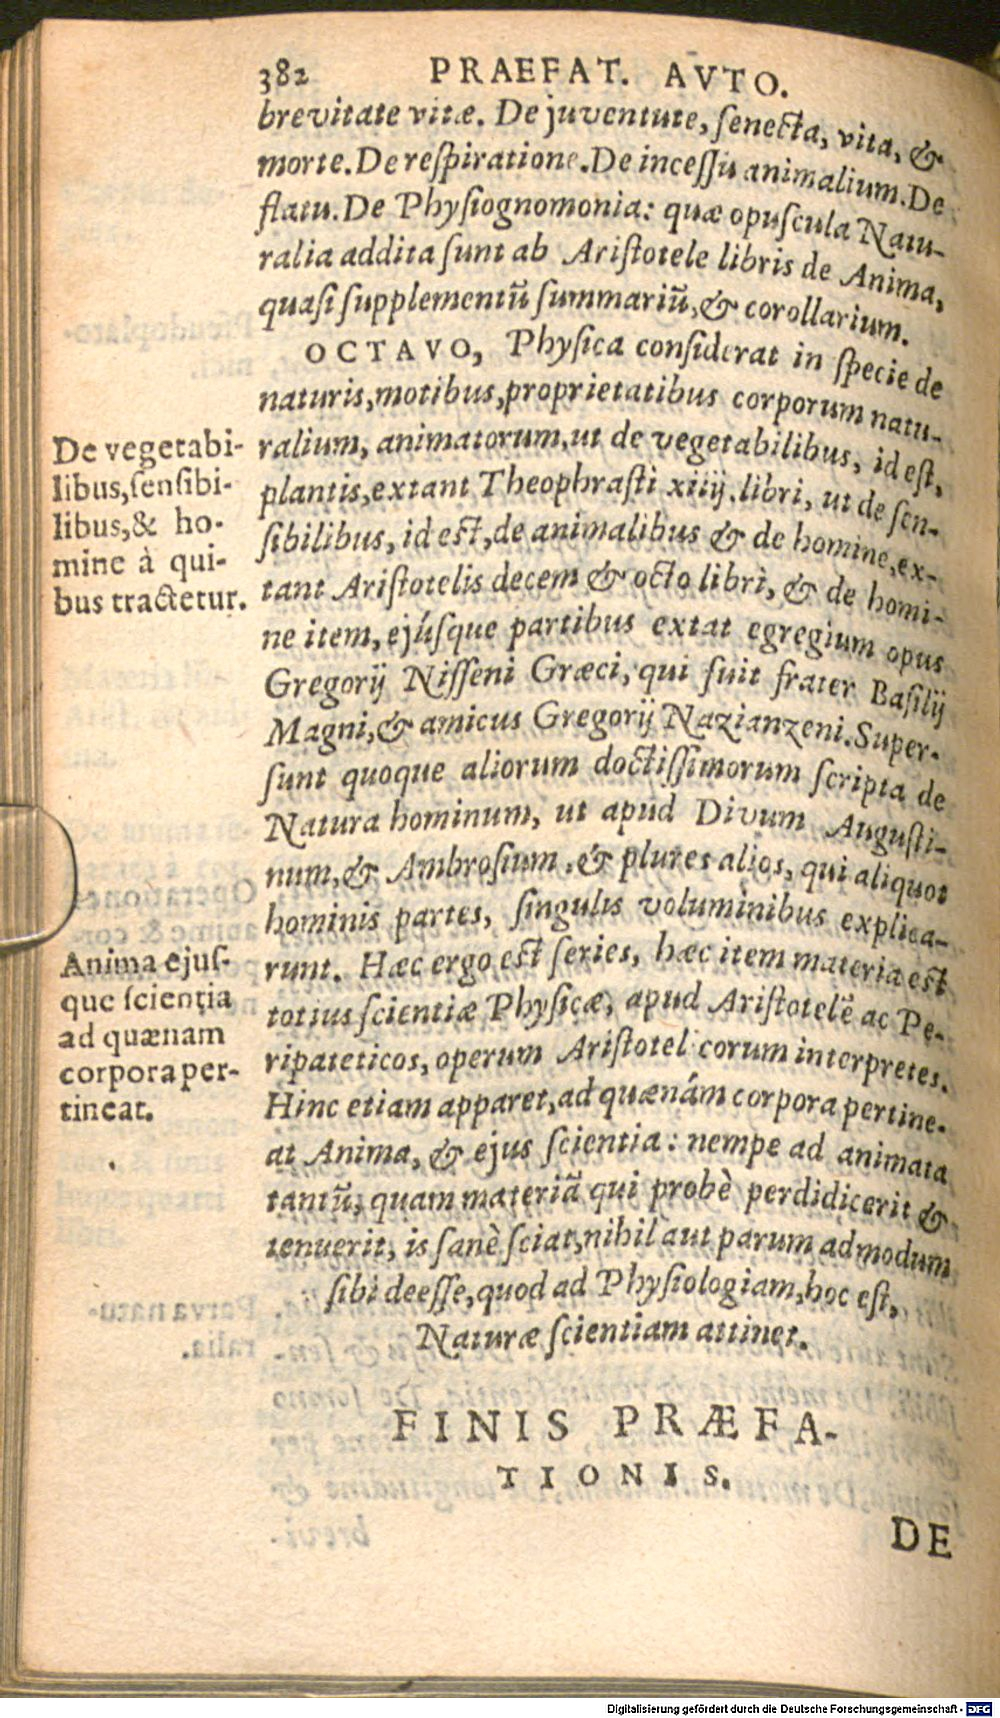 382 PRAEFAT. AVTO.
brevitate vitæ. De juventute, ſenecta, vita, &
morte. De reſpiratione. De inceſſu animalium. De
flatu. De Phyſiognomonia: quæ opuſcula Natu-
ralia addita ſunt ab Ariſtotele libris de Anima,
quaſi ſupplementũ ſummariũ, & corollarium.
OCTAVO, Phyſica conſiderat in ſpecie de
naturis, motibus, proprietatibus corporum natu-
ralium, animatorum, ut de vegetabilibus, id eſt,
plantis, extant Theophraſti xiiij. libri, ut de ſen-
ſibilibus, id eſt, de animalibus & de homine, ex-
tant Ariſtotelis decem & octo libri, & de homi-
ne item, ejúſque partibus extat egregium opus
Gregorij Niſſeni Græci, qui fuit frater Baſilij
Magni, & amicus Gregorij Nazianzeni. Super-
ſunt quoque aliorum doctiſſimorum ſcripta de
Natura hominum, ut apud Divum Auguſti-
num, & Ambroſium, & plures alios, qui aliquot
hominis partes, ſingulis voluminibus explica-
runt. Hæc ergo eſt ſeries, hæc item materia eſt
totius ſcientiæ Phyſicæ, apud Ariſtotelẽ ac Pe-
ripateticos, operum Ariſtotel corum interpretes.
Hinc etiam apparet, ad quænám corpora pertine-
at Anima, & ejus ſcientia: nempe ad animata
tantũ; quam materiã qui probè perdidicerit &
tenuerit, is ſanè ſciat, nihil aut parum admodum
ſibi deeſſe, quod ad Phyſiologiam, hoc eſt,
Naturæ ſcientiam attinet.
FINIS PRÆFA-
TIONIS.
DE
De vegetabi-
libus, ſenſibi-
libus, & ho-
mine à qui-
bus tractetur.
Anima ejuſ-
que ſcientia
ad quænam
corpora per-
tineat.
Digitalisierung gefördert durch die Deutsche Forschungsgemeinschaft - DFG